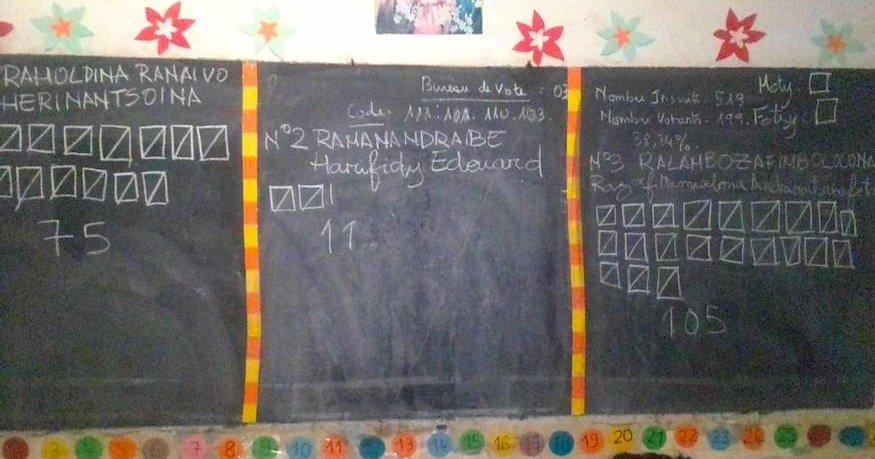 RAHOLDINA RANAIVO
HERINANTSOINA
75
Bureau de Vote : 03
Code : 111.101.110.103.
N°2 RAMANANDRAIBE
Harifidy Edouard
11
Nombre Inscrit : 519
Moty :
Nombre Votants : 199.
Fotsy :
38,34%.
N°3 RALAMBOZAFIMBOLOLONA
105
7
8
9
10
11
12
13
14
15
16
17
18
19
20
21
22
23
24
25